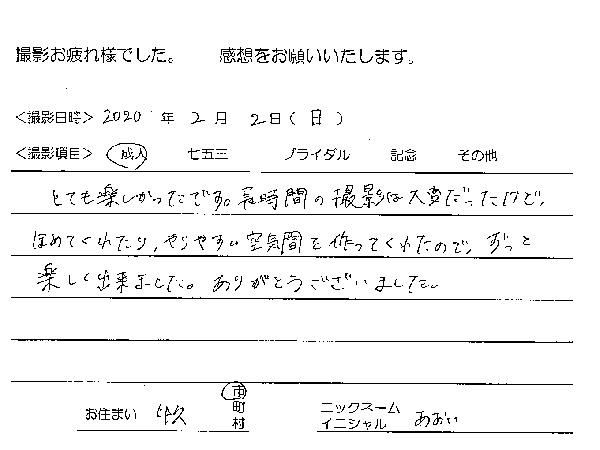 撮影お疲れ様でした。 感想をお願いいたします。
<撮影日時> 2020 年 2 月 2日(日)
<撮影項目> 成人 七五三 ブライダル 記念 その他
とても楽しかったです。長時間の撮影は大変だったけど、
ほめてくれたり、やりやすい空気間を作ってくれたので、ずっと
楽しく出来ました。ありがとうございました。
お住まい 牛久 市町村 ニックネーム イニシャル あおい